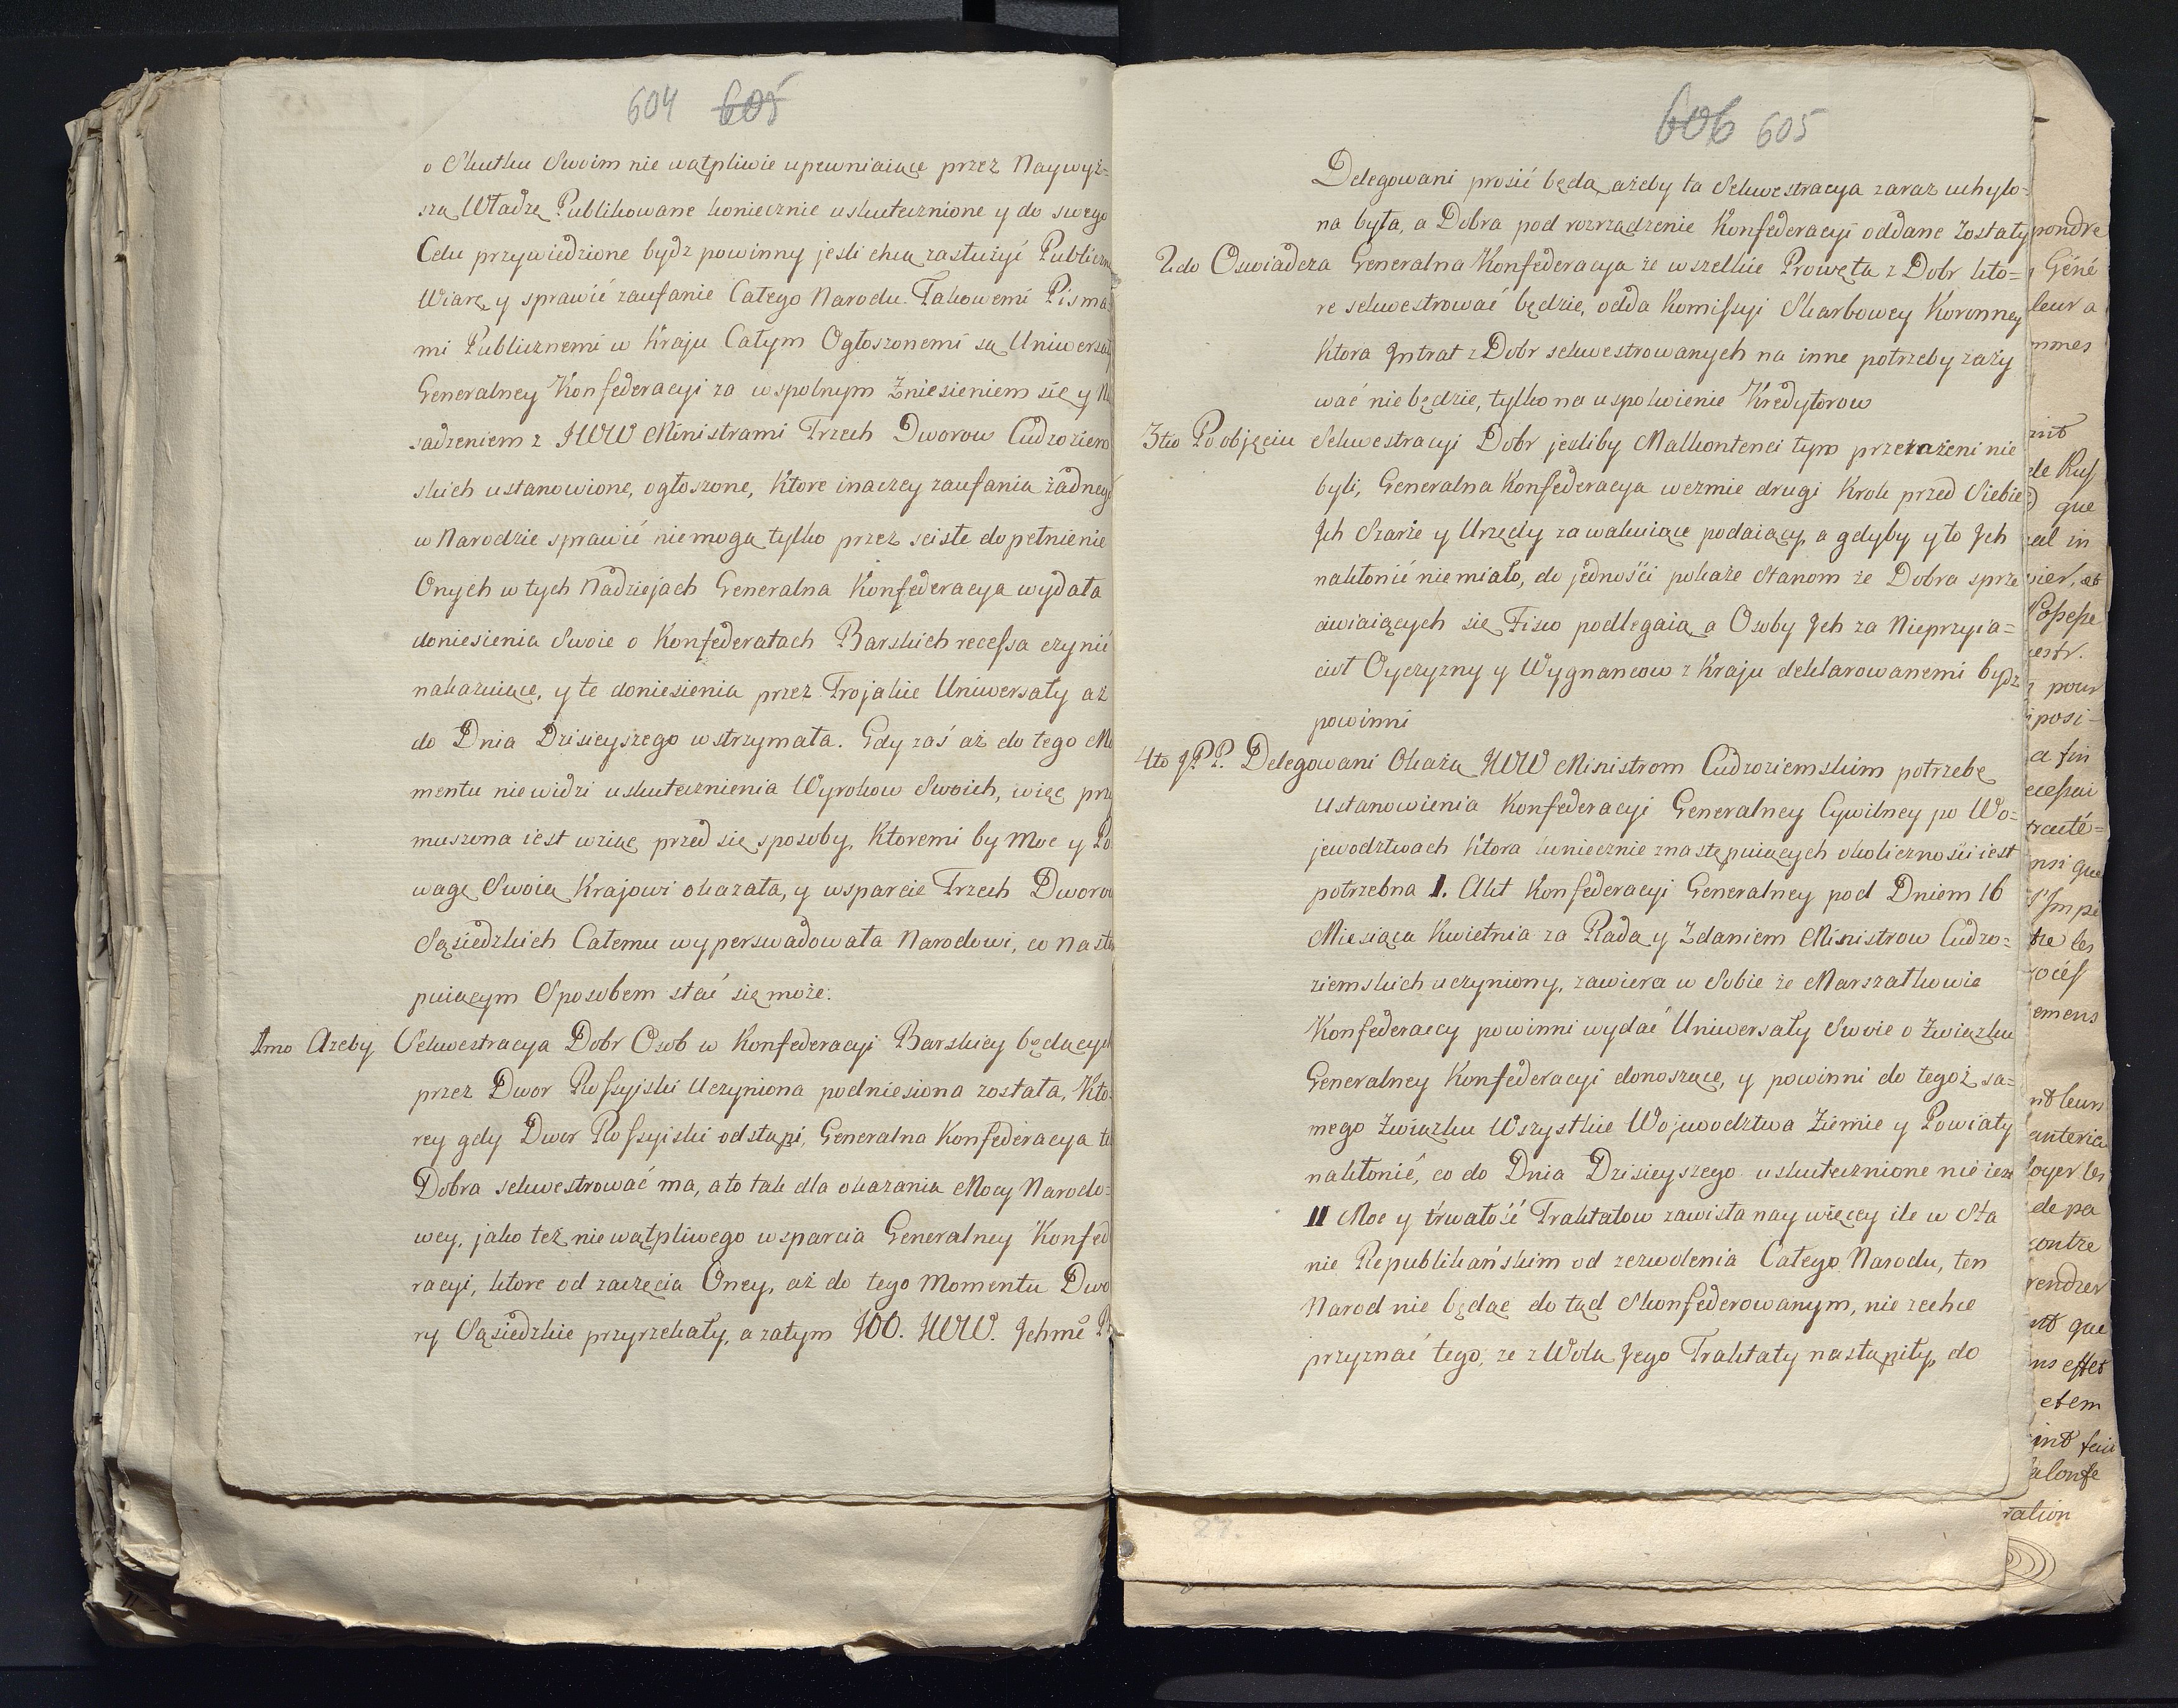 604 605
o Skutku Swoim nie wątpliwie upewniaiące przez Naywyż=
szą Władzę Publikowane koniecznie uskutecznione y do swego
Celu przywiedzione bydz powinny jesli chcą zasłużyć Publiczn
Wiarę y sprawić zaufanie Całego Narodu. Takowemi Pisma
mi Publicznemi w Kraju Całym Ogłoszonemi są Uniwersały
Generalney Konfederacyi za wspolnym Zniesieniem się y N
sadzeniem z JWW Ministrami Trzech Dworow Cudzoziem
skich ustanowione, ogłoszone, Ktore inaczey zaufania żadneg
w Narodzie sprawić nie mogą tylko przez scisłe dopełnienie
Onych w tych Nadziejach Generalna Konfederacya wydała
doniesienia Swoie o Konfederatach Barskich recessa czynić
nakazuiące, y te doniesienia przez Trojakie Uniwersały aż
do Dnia Dzisieyszego wstrzymała. Gdy zaś aż do tego Mo
mentu nie widzi uskutecznienia Wyrokow Swoich, więc prz
muszona iest wziąć przed się sposoby, Ktoremi by Moc y Po
wagę Swoią Krajowi okazała, y wsparcie Trzech Dworow
Sąsiedzkich Całemu wyperswadowała Narodowi, co nastę
puiącym Sposobem stać się może.
1mo Azeby Sekwestracya Dobr Osob w Konfederacyi Barskiey będących
przez Dwor Rossyiski Uczyniona podniesiona została, Kto=
rey gdy Dwor Rossyiski odstąpi, Generalna Konfederacya te
Dobra sekwestrować ma, a to tak dla okazania Mocy Narodo=
wey, jako też nie wątpliwego wsparcia Generalney Konfed
racyi, ktore od zaczęcia Oney, aż do tego Momentu Dwo
ry Sąsiedzkie przyrzekały, a zatym JOO. JWW. Jchmć P
606 605
Delegowani prosić będą ażeby ta Sekwestracya zaraz uchylo=
na była, a Dobra pod rozrządzenie Konfederacyi oddane Zostały
2do Oswiadcza Generalna Konfederacya że wszelkie Prowęta z Dobr kto=
re sekwestrować będzie, odda Komissyi Skarbowey Koronney
Ktora Jntrat z Dobr sekwestrowanych na inne potrzeby zaży
wać nie będzie, tylko na uspokoienie Kredytorow
3tio Po objęciu Sekwestracyi Dobr jesliby Malkontenci tym przerażeni nie
byli, Generalna Konfederacya wezmie drugi Krok przed Siebie
Jch Szarże y Urzędy za wakuiące podaiący, a gdyby y to Jch
nakłonić nie miało, do jedności pokaże Stanom że Dobra sprze
ciwiaiących się Fisco podlegaią a Osoby Jch za Nieprzyia=
cioł Oyczyzny y Wygnancow z Kraju deklarowanemi bydz
powinni
4to J.P.P. Delegowani Okażą JWW Ministrom Cudzoziemskim potrzebę
Ustanowienia Konfederacyi Generalney Cywilney po Wo=
jewodztwach Ktora koniecznie z następuiących okoliczności iest
potrzebna I. Akt Konfederacyi Generalney pod Dniem 16
Miesiąca Kwietnia za Radą y Zdaniem Ministrow Cudzo=
ziemskich uczyniony, zawiera w Sobie że Marszałkowie
Konfederaccy powinni wydać Uniwersały Swoie o Związku
Generalney Konfederacyi donoszące, y powinni do tegoż sa=
mego Związku Wszystkie Wojewodztwa Ziemie y Powiaty
nakłonić, co do Dnia Dzisieyszego uskutecznione nie iest
II Moc y trwałość Traktatow zawisła naywięcey ile w Sta
nie Republikańskim od zezwolenia Całego Narodu, ten
Narod nie będąc do tąd Skonfederowanym, nie zechce
przyznać tego, że z Wolą Jego Traktaty nastąpiły, do